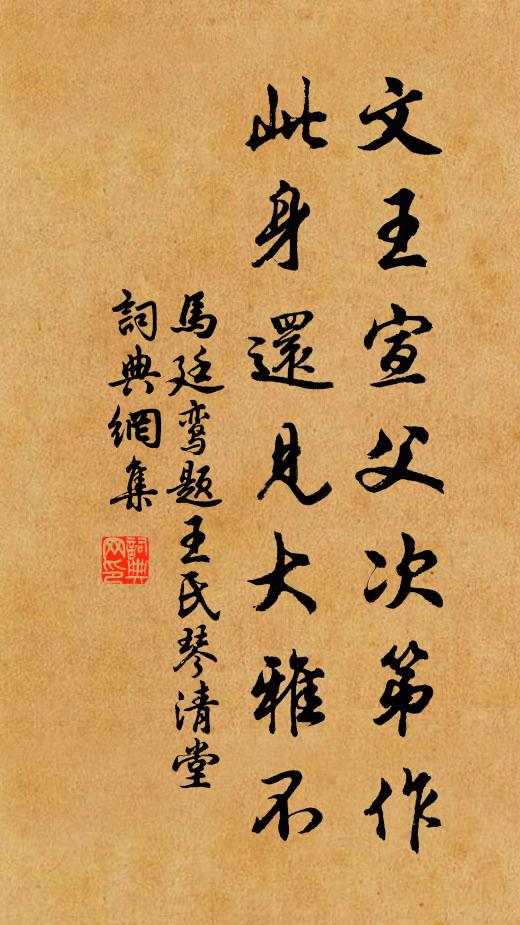 文王宣父次第作
此身還見大雅不
馬廷鸾题王氏琴清堂
詞典網集
詞典網印